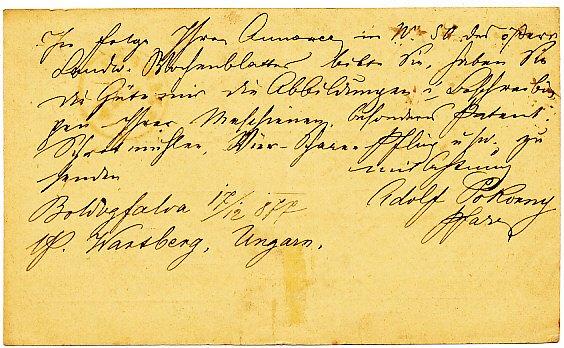 In Folge Ihrer Annonce in No. 50 des österr
Landw. Wochenblattes bitte Sie, haben Sie
die Güte mir die Abbildungen u Beschreibun
gen Ihrer Maschienen, besonders Patent:
Schrotmühlen, Vier-Schare-Pflug usw. zu
senden mit Achtung
Boldogfalva 17/12 877 Adolf Pokorny
Wartberg, Ungarn.